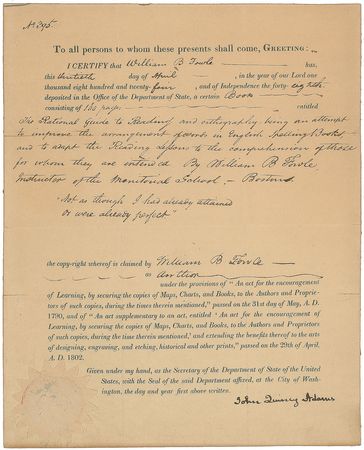 No 395.
To all persons to whom these presents shall come, GREETING:
I CERTIFY that William B Fowle has,
this thirtieth day of April, in the year of our Lord one
thousand eight hundred and twenty-four, and of Independence the forty-eighth
deposited in the Office of the Department of State, a certain Book
consisting of 160 pages entitled
The Rational Guide to Reading and orthography being an attempt
to improve the arrangement of words in English Spelling Books,
and to adapt the Reading lessons to the comprehension of those
for whom they are intended By William B Fowle
Instructor of the Monitorial School - Boston
"Not as though I had already attained
Or were already perfect"
the copy-right whereof is claimed by William B Fowle
as author
under the provisions of "An act for the encouragement
of Learning, by securing the copies of Maps, Charts, and Books, to the Authors and Proprie-
tors of such copies, during the times therein mentioned," passed on the 31st day of May, A. D.
1790, and of "An act supplementary to an act, entitled 'An act for the encouragement
of Learning, by securing the copies of Maps, Charts, and Books, to the Authors and Proprietors
of such copies, during the times therein mentioned,' and extending the benefits thereof to the arts
of designing, engraving, and etching, historical and other prints," passed on the 29th of April,
A. D. 1802.
Given under my hand, as the Secretary of the Department of State of the United
States, with the Seal of the said Department affixed, at the City of Wash-
ington, the day and year first above written.
John Quincy Adams